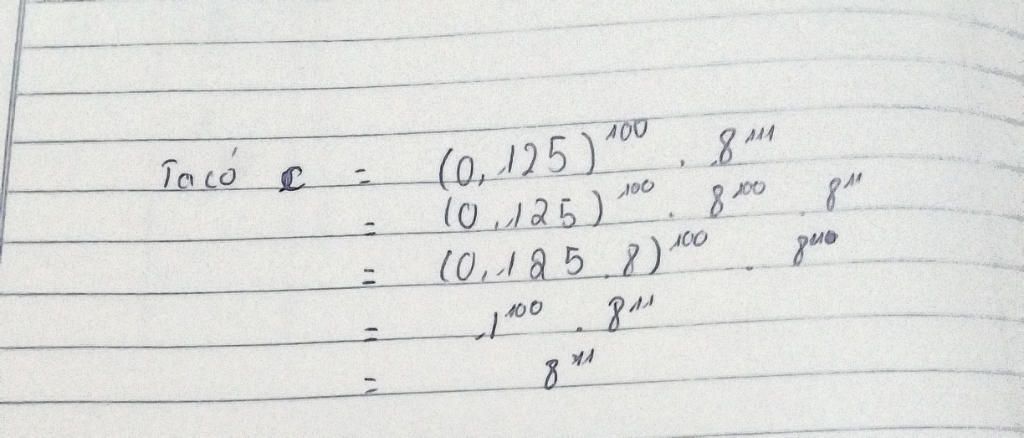 Ta có C = (0,125)¹⁰⁰ . 8¹¹¹
= (0,125)¹⁰⁰ . 8¹⁰⁰ . 8¹¹
= (0,125.8)¹⁰⁰ . 8
= 1¹⁰⁰ . 8¹¹
= 8¹¹